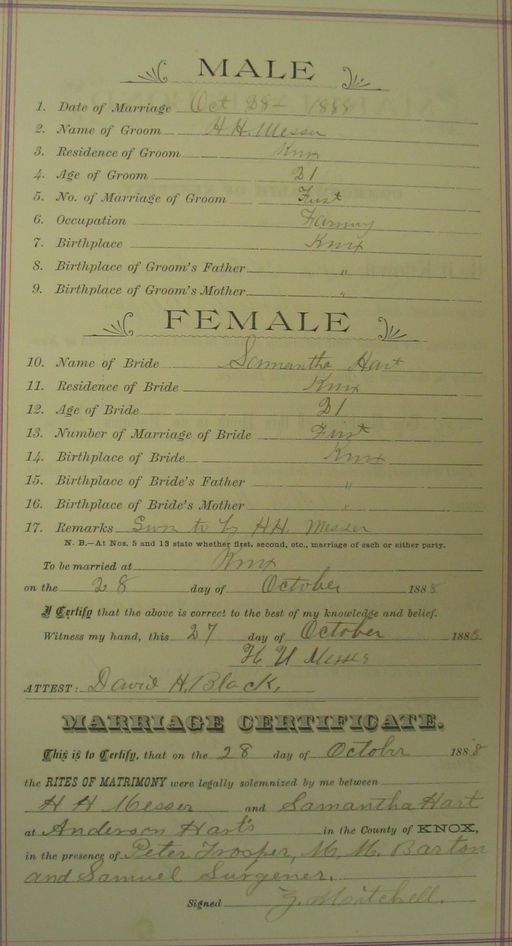 MALE
1. Date of Marriage Oct 28- 1888
2. Name of Groom H.H. Messer
3. Residence of Groom Knox
4. Age of Groom 21
5. No. of Marriage of Groom First
6. Occupation Farming
7. Birthplace Knox
8. Birthplace of Groom's Father "
9. Birthplace of Groom's Mother "
FEMALE
10. Name of Bride Samantha Hart
11. Residence of Bride Knox
12. Age of Bride 21
13. Number of Marriage of Bride First
14. Birthplace of Bride Knox
15. Birthplace of Bride's Father "
16. Birthplace of Bride's Mother "
17. Remarks to by HH. Messer
N. B.—At Nos. 5 and 13 state whether first, second, etc., marriage of each or either party.
To be married at Knox
on the 28 day of October 1888
I Certify that the above is correct to the best of my knowledge and belief.
Witness my hand, this 27 day of October 1888
H H Messer
ATTEST: David H. Black,
MARRIAGE CERTIFICATE.
This is to Certify, that on the 28 day of October 1888
the RITES OF MATRIMONY were legally solemnized by me between
H H Messer and Samantha Hart
at Anderson Hart's in the County of KNOX,
in the presence of Peter Trosper, M. M. Barton
and Samuel Surgener.
Signed Mitchell.